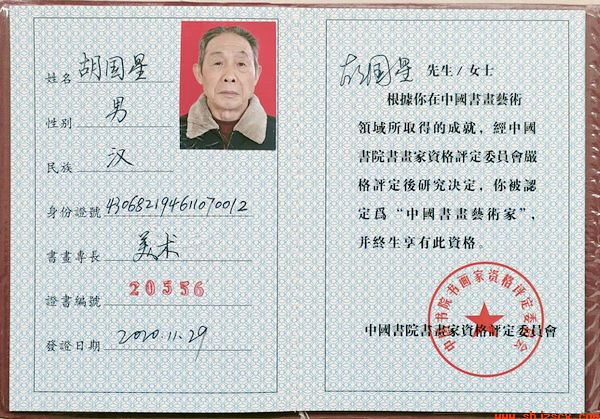 姓名 胡国星
性别 男
民族 汉
身份證號 430682194611070012
書畫專長 美术
證書編號 20556
發證日期 2020.11.29
胡國星 先生/女士
根據你在中國書畫藝術
領域所取得的成就，經中國
書院書畫家資格評定委員會嚴
格評定後研究决定，你被認
定爲“中國書畫藝術家”，
并終生享有此資格。
中國書院書畫家資格評定委員會
中国书院书画家资格评定委员会